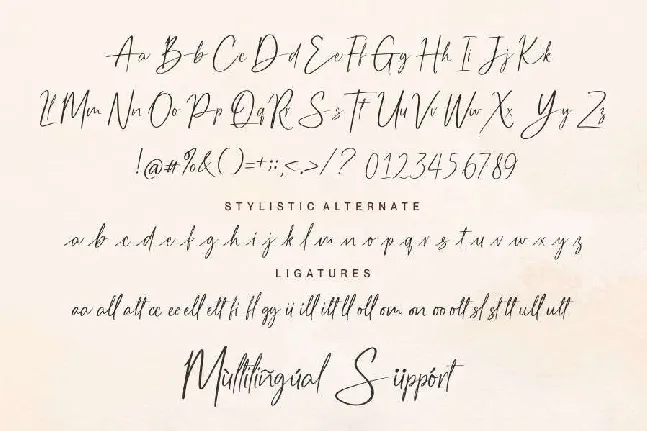 Aa Bb Cc Dd Ee Ff Gg Hh Ii Jj Kk
Ll Mm Nn Oo Pp Qq Rr Ss Tt Uu Vv Ww Xx Yy Zz
!@#%&()=+:;,<.>/? 0123456789
STYLISTIC ALTERNATE
a b c d e f g h i j k l m n o p q r s t u v w x y z
LIGATURES
aa all alt cc ee ell elt fi fl gg ii ill ilt ll oll om on oo olt sl st tt ull ult
Mùltilíñgúal Süppórt